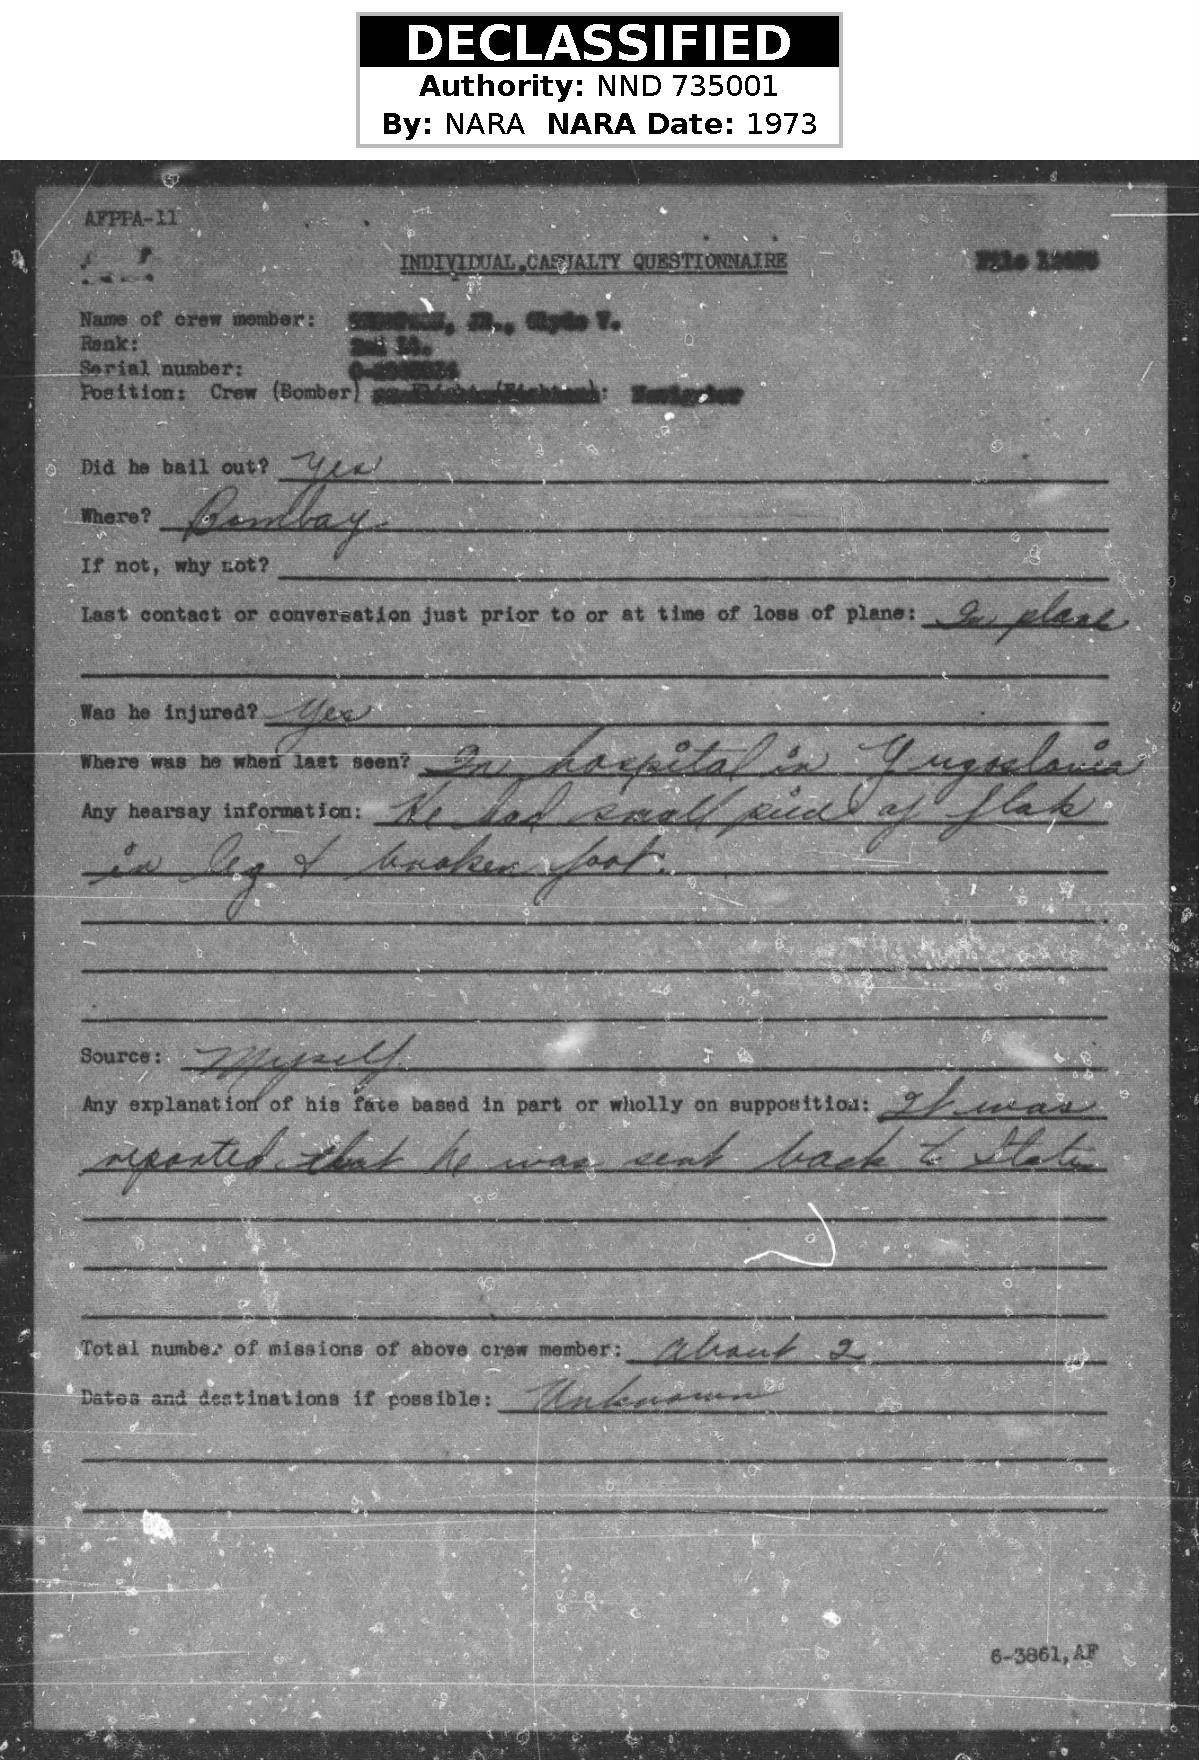 DECLASSIFIED
Authority: NND 735001
By: NARA NARA Date: 1973
AFPPA-11
INDIVIDUAL CASUALTY QUESTIONNAIRE
File
Name of crew member: JR., Clyde V.
Rank: 2nd Lt.
Serial number:
Position: Crew (Bomber) : Navigator
Did he bail out? Yes
Where? Bombay.
If not, why not?
Last contact or conversation just prior to or at time of loss of plane: In plane
Was he injured? Yes
Where was he when last seen? In hospital in Yugoslavia
Any hearsay information: He had small piece of flak
in leg & broken foot.
Source: Myself
Any explanation of his fate based in part or wholly on supposition: It was
reported that he was sent back to States
Total number of missions of above crew member: About 2
Dates and destinations if possible: Unknown
6-3861,AF